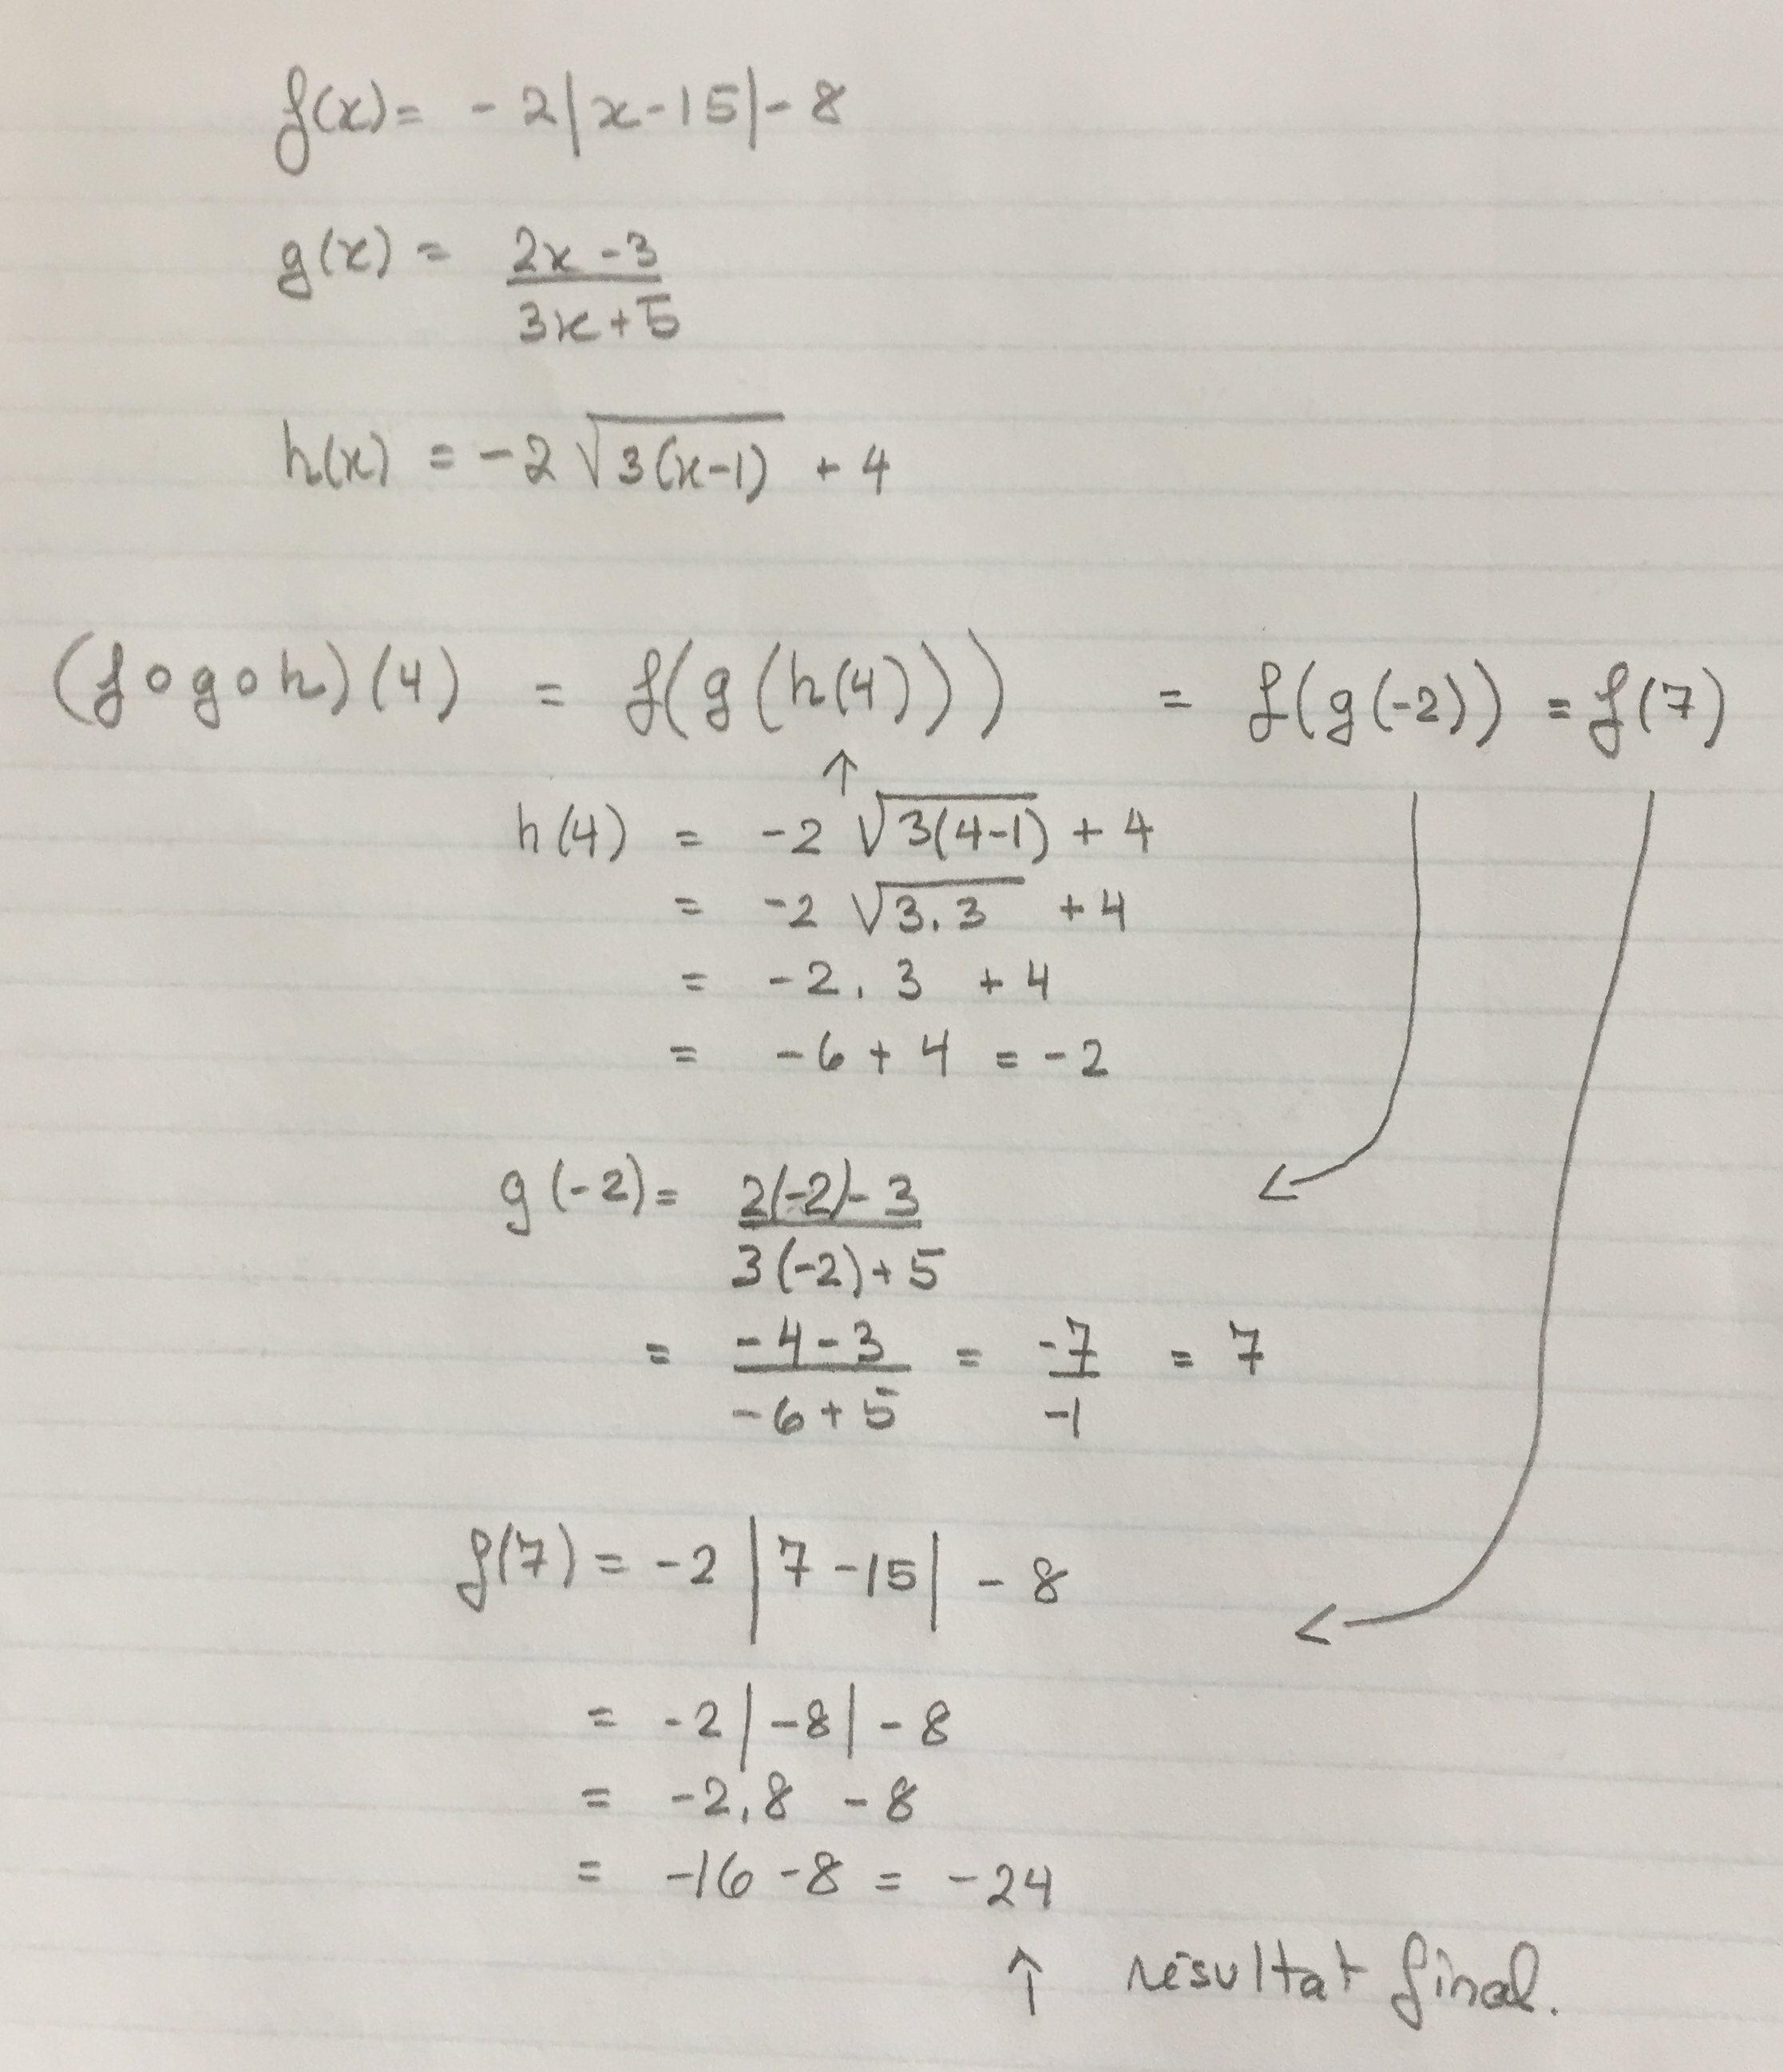 f(x) = -2|x-15|-8
g(x) = (2x-3)/(3x+5)
h(x) = -2√(3(x-1)) + 4
(f∘g∘h)(4) = f(g(h(4))) = f(g(-2)) = f(7)
↑
h(4) = -2√(3(4-1)) + 4
= -2√(3.3) + 4
= -2.3 + 4
= -6+4 = -2
g(-2) = (2(-2)-3)/(3(-2)+5)
= (-4-3)/(-6+5) = -7/-1 = 7
f(7) = -2|7-15| - 8
= -2|-8|-8
= -2.8 -8
= -16-8 = -24
↑ résultat final.